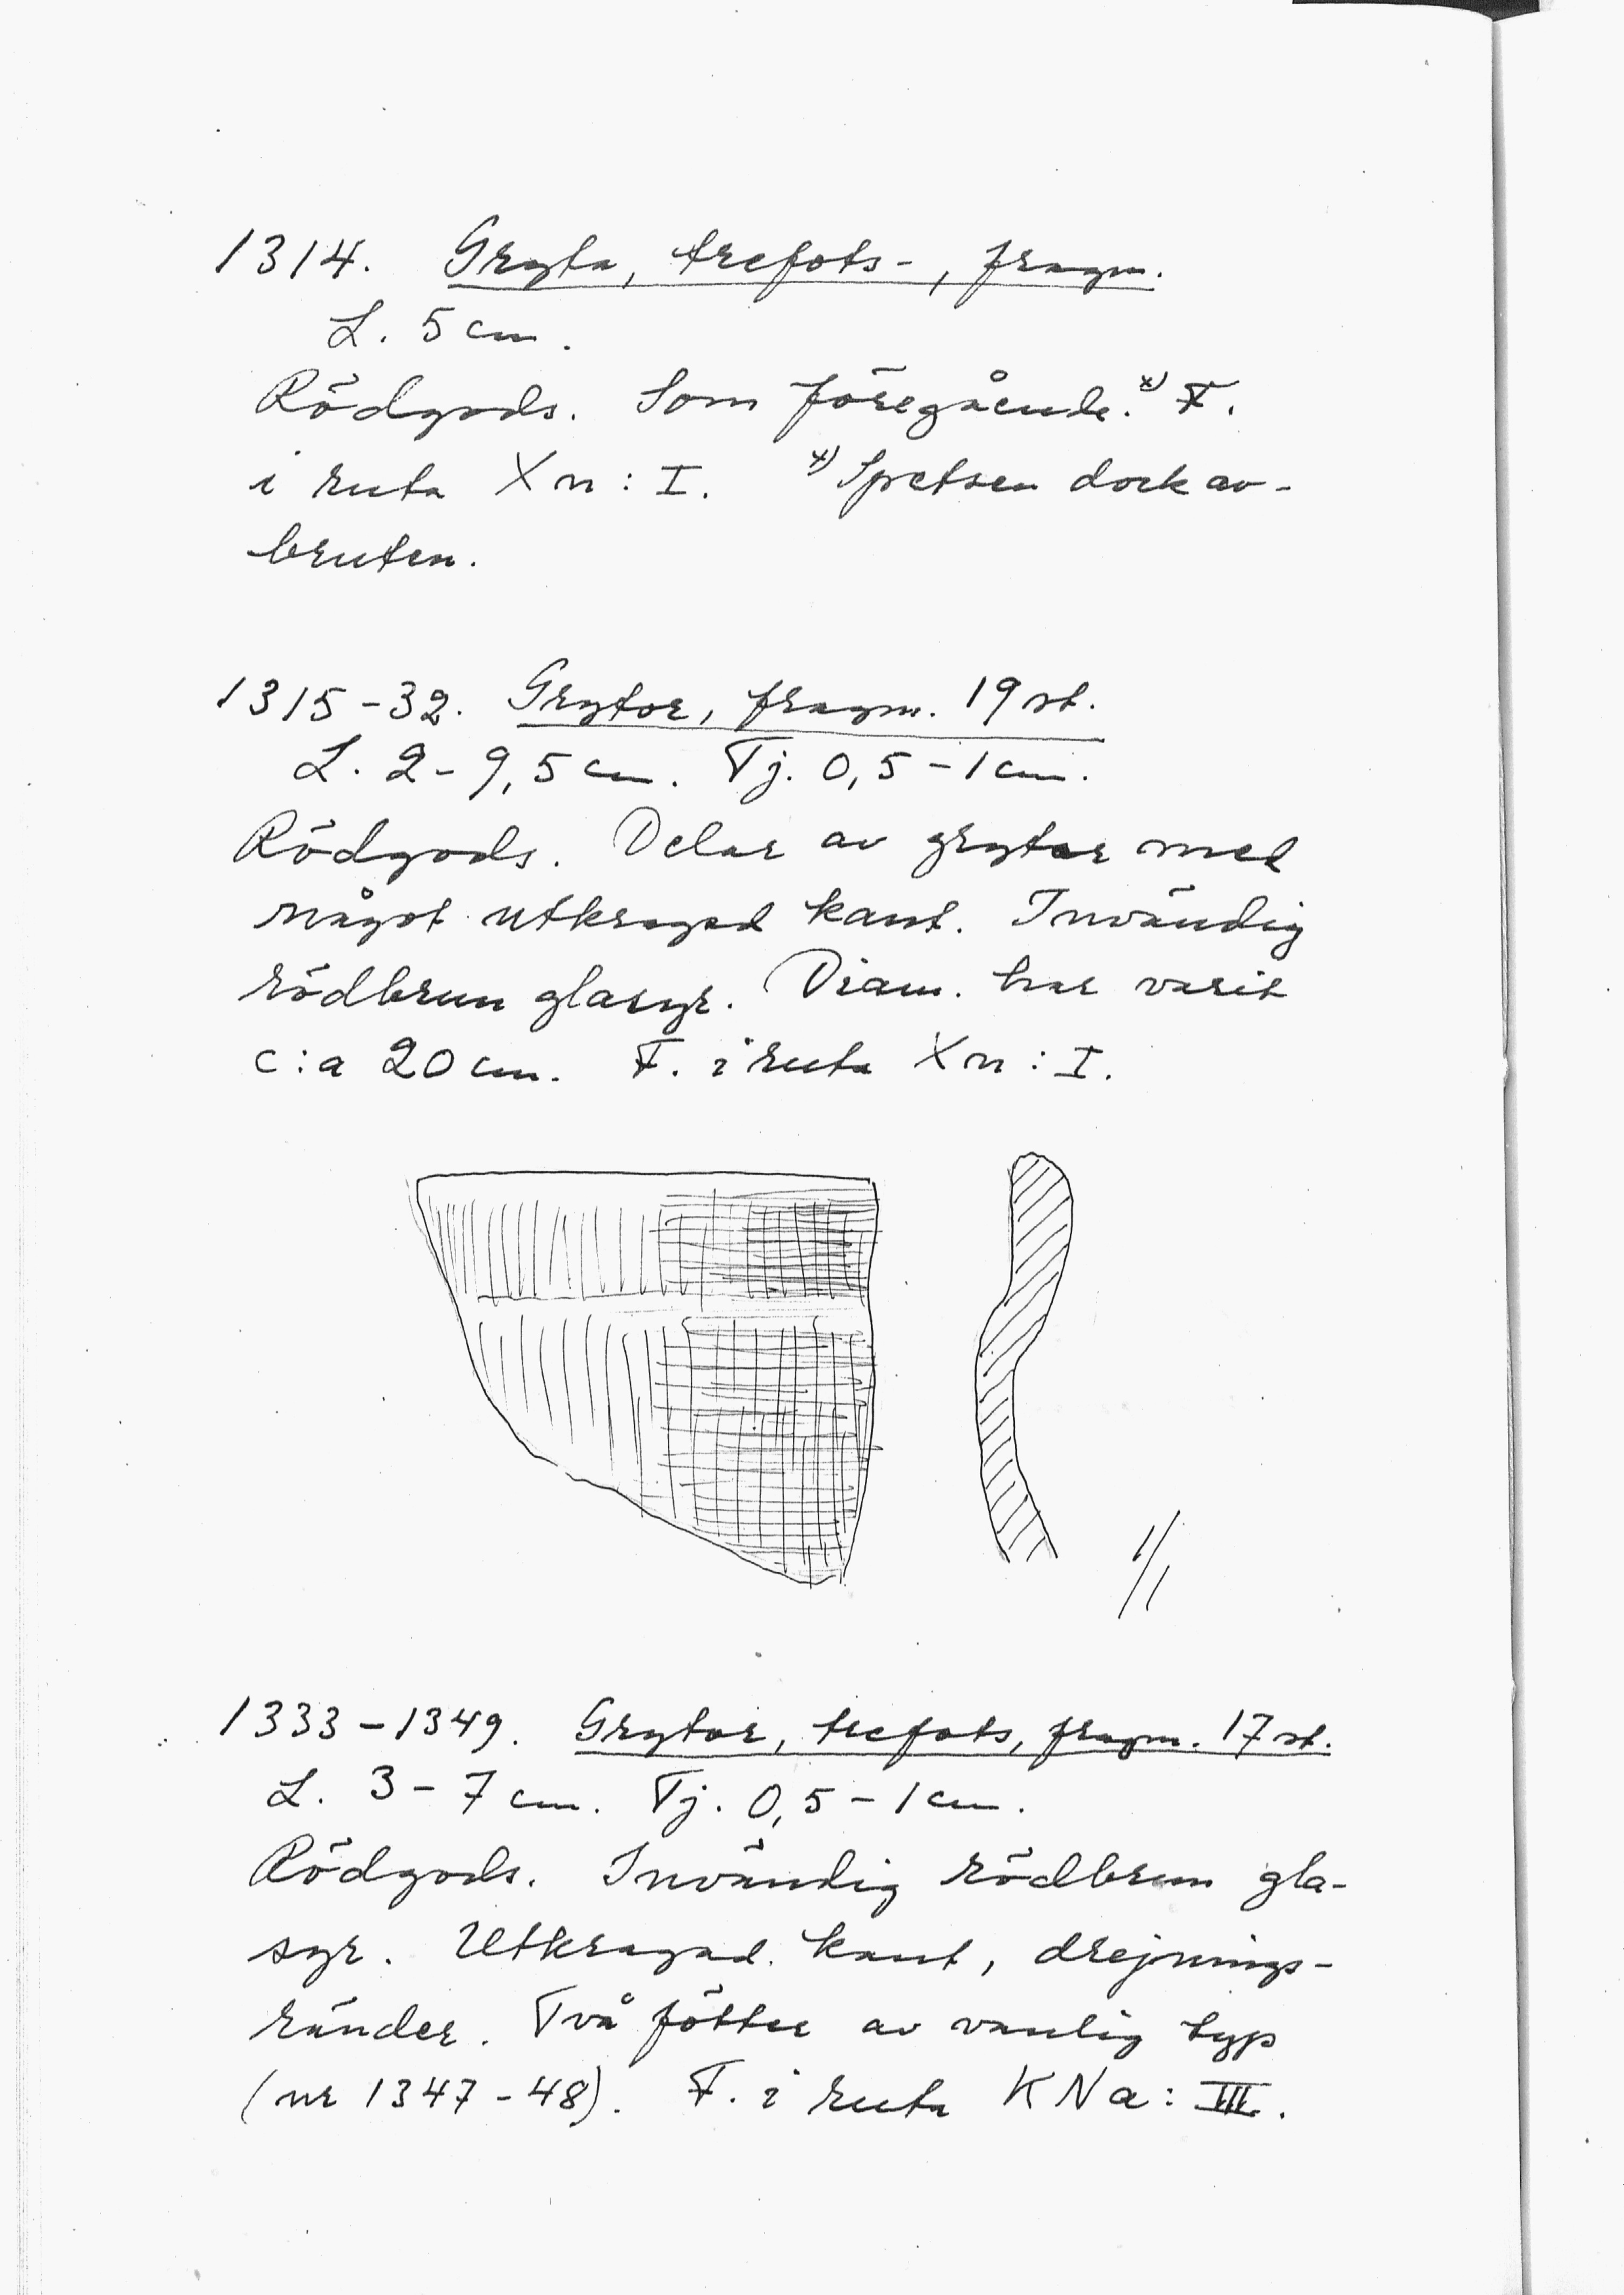 1314. Gryta, trefots-, fragm.
L. 5 cm.
Rödgods. Som föregående.x) F.
i ruta Xn: I. x) Spetsen dock av-
bruten.
1315-32. Grytor, fragm. 19 st.
L. 2-9,5 cm. Tj. 0,5-1 cm.
Rödgods. Delar av grytor med
något utkragad kant. Invändig
rödbrun glasyr. Diam. har varit
c:a 20 cm. F. i ruta Xn: I.
1/1
1333-1349. Grytor, trefots, fragm. 17 st.
L. 3-7 cm. Tj. 0,5-1 cm.
Rödgods. Invändig rödbrun gla-
syr. Utkragad kant, drejnings-
ränder. Två fötter av vanlig typ
(nr 1347-48). F. i ruta KNa: III.